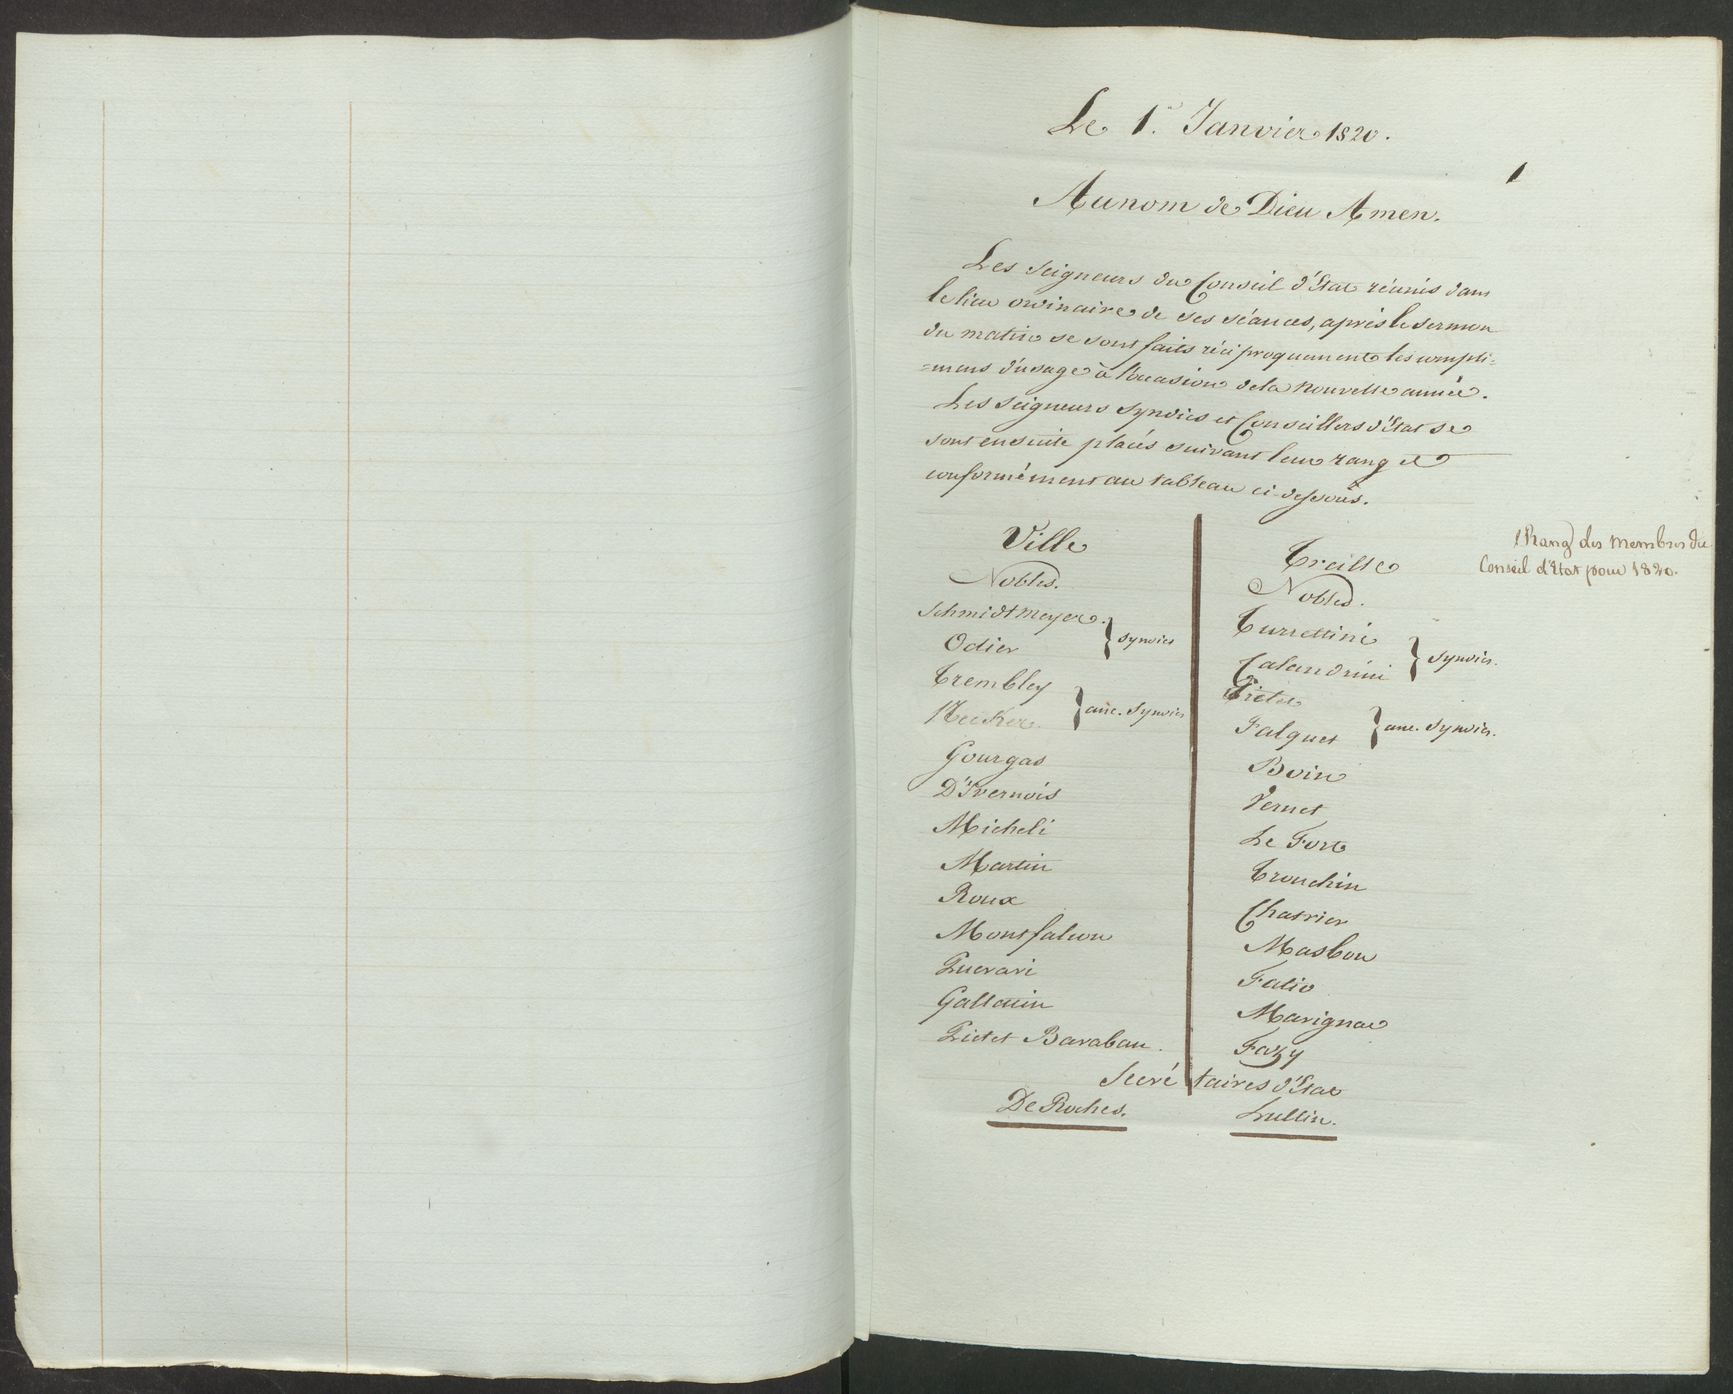 Le 1.r Janvier 1820.
1
Au nom de Dieu Amen.
Les Seigneurs du Conseil d'Etat réunis dans
le lieu ordinaire de ses séances, après le sermon
du matin se sont faits réciproquement les compli=
=mens d'usage à l'occasion de la nouvelle année.
Les Seigneurs Syndics et Conseillers d'Etat se
sont ensuite placés suivant leur rang et
conformément au tableau ci-dessous.
Rang des Membres du
Conseil d'Etat pour 1820.
Ville
Nobles.
Schmidtmeyer.
Odier
} Syndics
Trembley
Necker.
} anc. Syndics
Gourgas
D'Ivernois
Micheli
Martin
Roux
Montfalcon
Gallatin
Pictet Baraban.
Treille
Nobles.
Turrettini
Calandrini
} Syndics.
Pictet
Falquet
} anc. Syndics.
Boin
Vernet
Le Fort
Tronchin
Chastrier
Masbou
Fatio
Marignac
Fazy
Secrétaires d'Etat
De Roches.
Lullin.